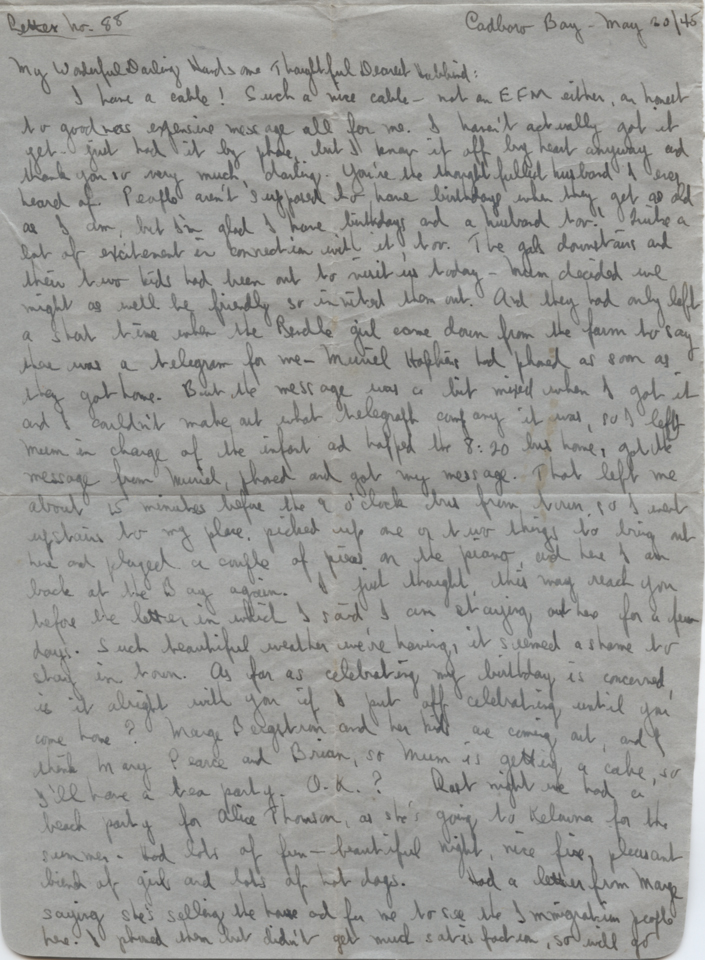 Letter no. 88
Cadboro Bay - May 20/45
My Wonderful Darling Handsome Thoughtful Dearest Hubbind:
I have a cable! Such a nice cable - not an EFM either, an honest
to goodness expensive message all for me. I haven't actually got it
yet - just had it by phone, but I know it off by heart anyway and
thank you so very much, darling. You're the thoughtfullest husband I ever
heard of. People aren't supposed to have birthdays when they get as old
as I am, but I'm glad I have birthdays and a husband too! Quite a
lot of excitement in connection with it, too. The gals downstairs and
their two kids had been out to visit us today - Mum decided we
might as well be friendly so invited them out. And they had only left
a short time when the girl came down from the farm to say
there was a telegram for me - Muriel Hopkins had phoned as soon as
they got home. But the message was a bit mixed when I got it
and I couldn't make out what telegraph company it was, so I left
Mum in charge of the infant and hopped the 8:20 bus home, got the
message from Muriel, phoned and got my message. That left me
about 15 minutes before the 9 o'clock bus from town, so I went
upstairs to my place, picked up one or two things to bring out
here and played a couple of pieces on the piano and here I am
back at the Bay again. I just thought this may reach you
before the letter in which I said I am staying out here for a few
days. Such beautiful weather we're having, it seemed a shame to
stay in town. As far as celebrating my birthday is concerned,
is it alright with you if I put off celebrating until you
come home? Marge Bergstrom and her kids are coming out, and I
think Mary Pearce and Brian, so Mum is getting a cake, so
I'll have a tea party. O.K.? Last night we had a
beach party for Alice Thomson, as she's going to Kelowna for the
summer. Had lots of fun - beautiful night, nice fire, pleasant
blend of girls and lots of hot dogs. Had a letter from Marge
saying she's selling the house and for me to see the Immigration people
here. I phoned them but didn't get much satisfaction, so will go